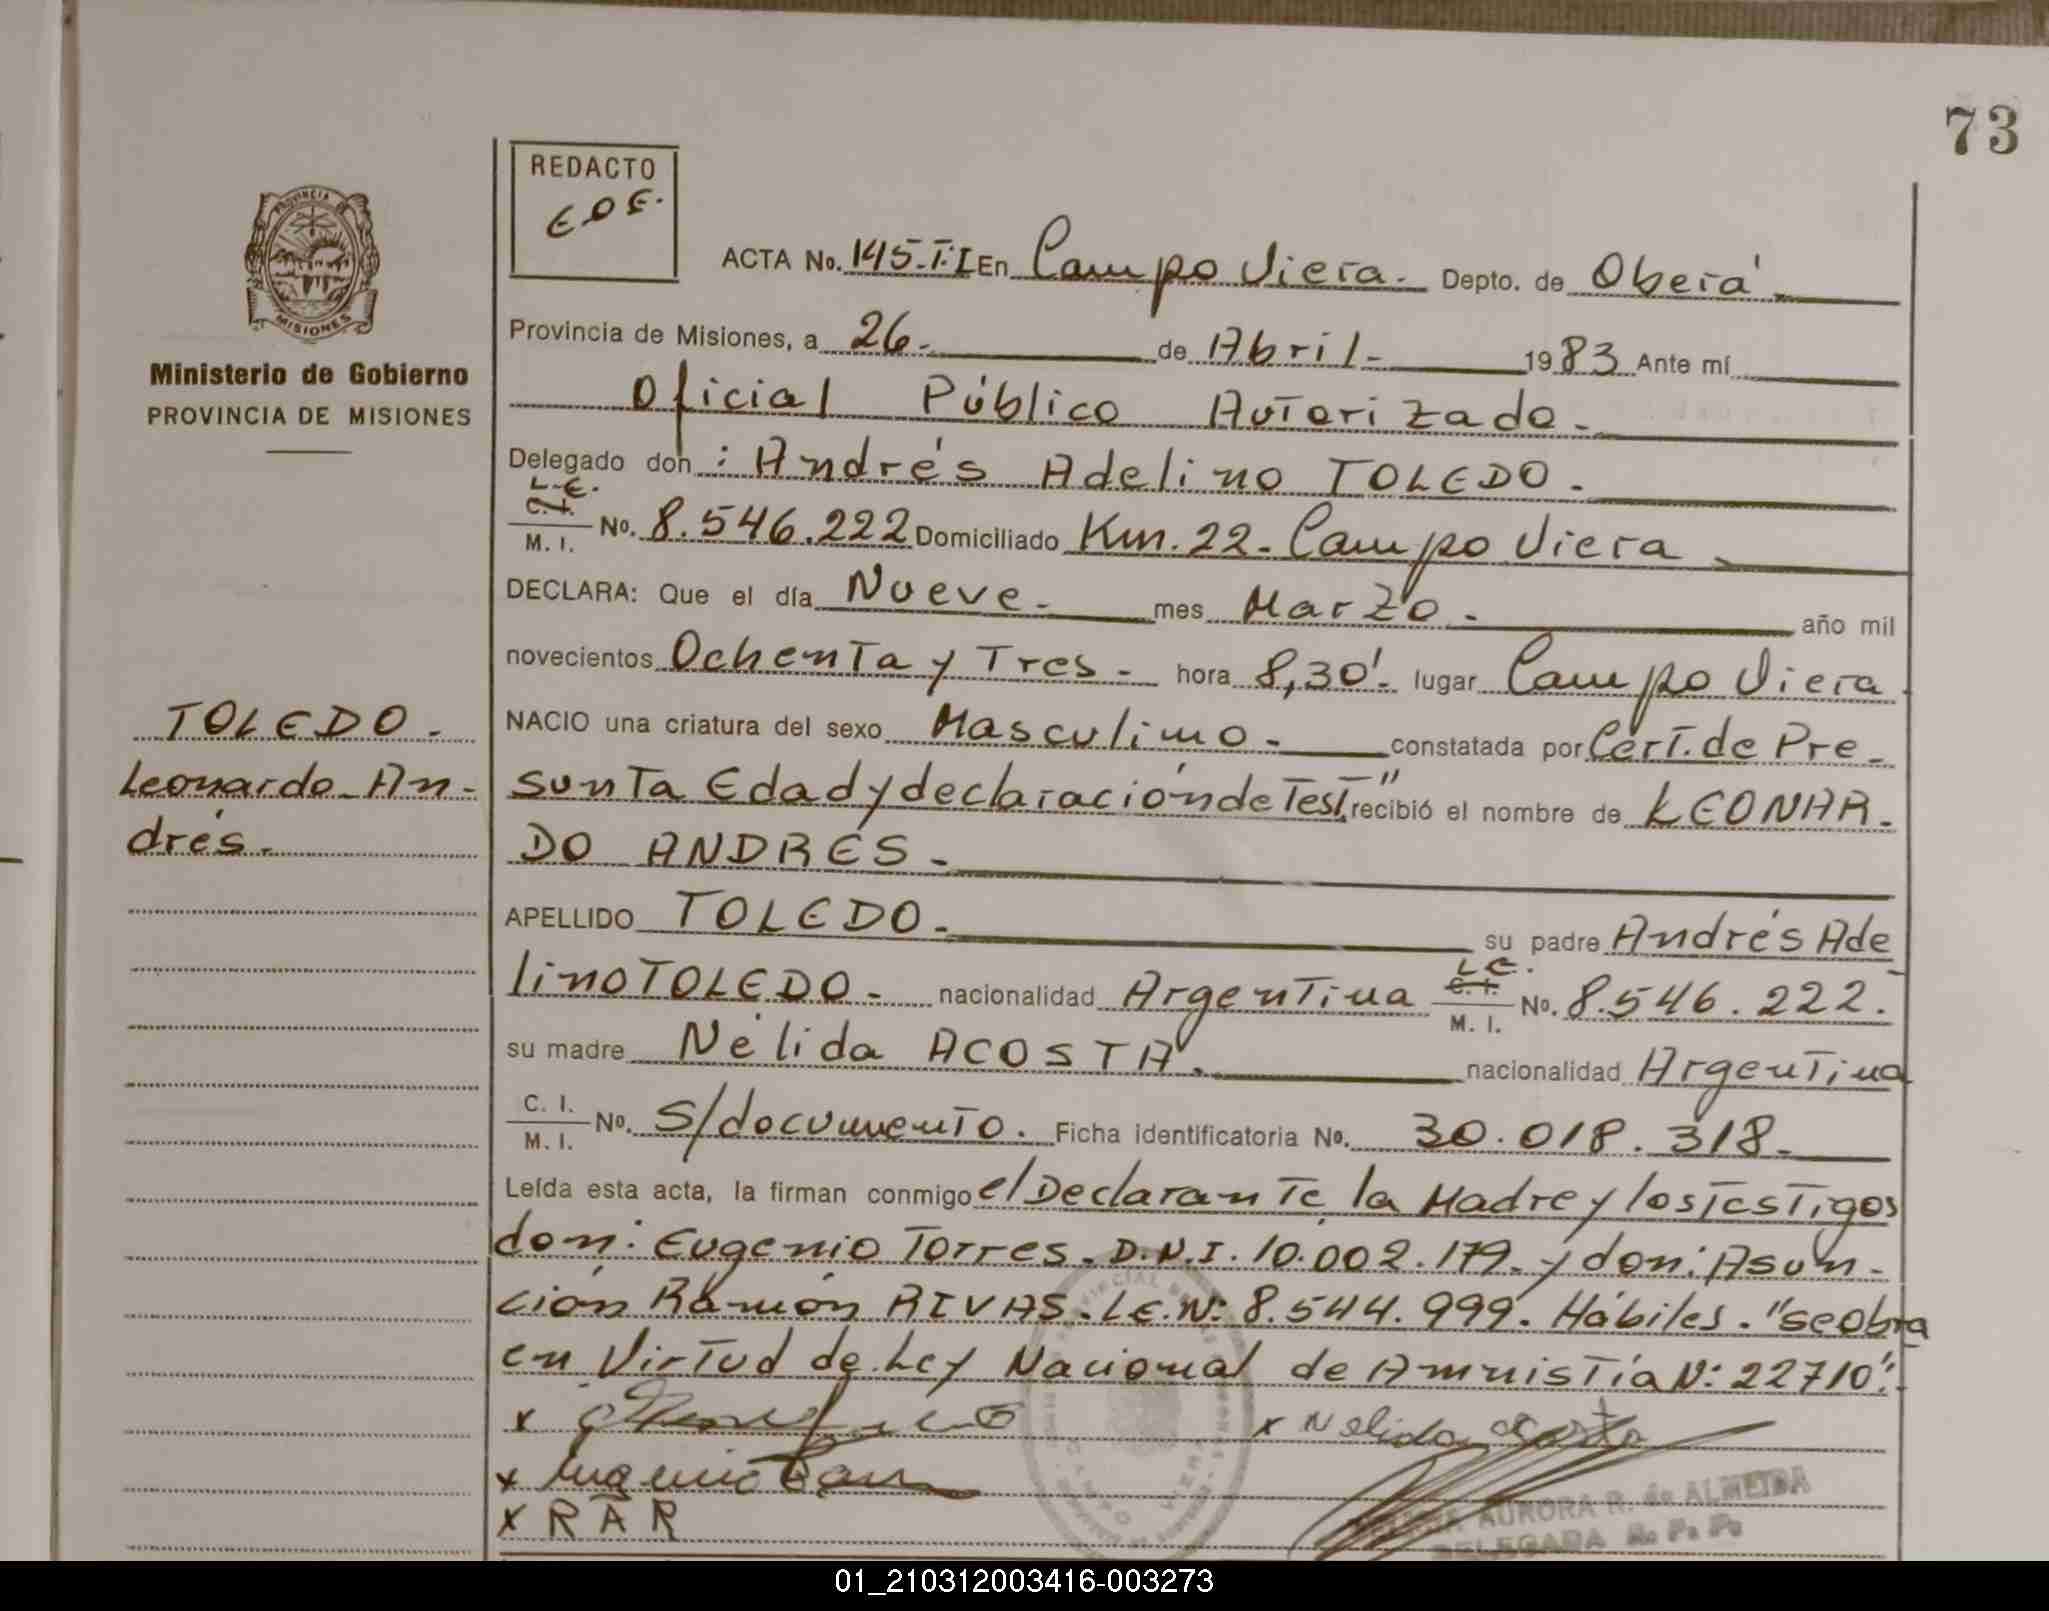 73
REDACTO
E.D.E.
PROVINCIA DE
MISIONES
Ministerio de Gobierno
PROVINCIA DE MISIONES
ACTA No. 145.T:I En Campo Viera. Depto. de Oberá
Provincia de Misiones, a 26. de Abril. 1983 Ante mí
Oficial Público Autorizado.
Delegado don: Andrés Adelino TOLEDO.
L.E.
C.I.
M. I. No. 8.546.222 Domiciliado Km. 22. Campo Viera
DECLARA: Que el día Nueve. mes Marzo. año mil
novecientos Ochenta y Tres. hora 8,30'. lugar Campo Viera.
NACIO una criatura del sexo Masculino. constatada por Cert. de Pre-
sunta Edad y declaración de Test." recibió el nombre de LEONAR-
DO ANDRES.
TOLEDO.
Leonardo An-
drés.
APELLIDO TOLEDO. su padre Andrés Ade
lino TOLEDO. nacionalidad Argentina L.E. C.I. M. I. No. 8.546.222.
su madre Nélida ACOSTA. nacionalidad Argentina
C. I.
M. I. No. S/documento. Ficha identificatoria No. 30.018.318.
Leída esta acta, la firman conmigo el Declarante, la Madre y los Testigos
don: Eugenio Torres. D.N.I. 10.002.179. y don: Asun-
ción Ramón RIVAS. L.E.N: 8.544.999. Hábiles. "se obra
en Virtud de Ley Nacional de Amnistía N: 22710".
x
x Nelida Acosta
x Eugenio
x R A R
AURORA R. de ALMEIDA
DELEGADA R. P. P.
01_210312003416-003273